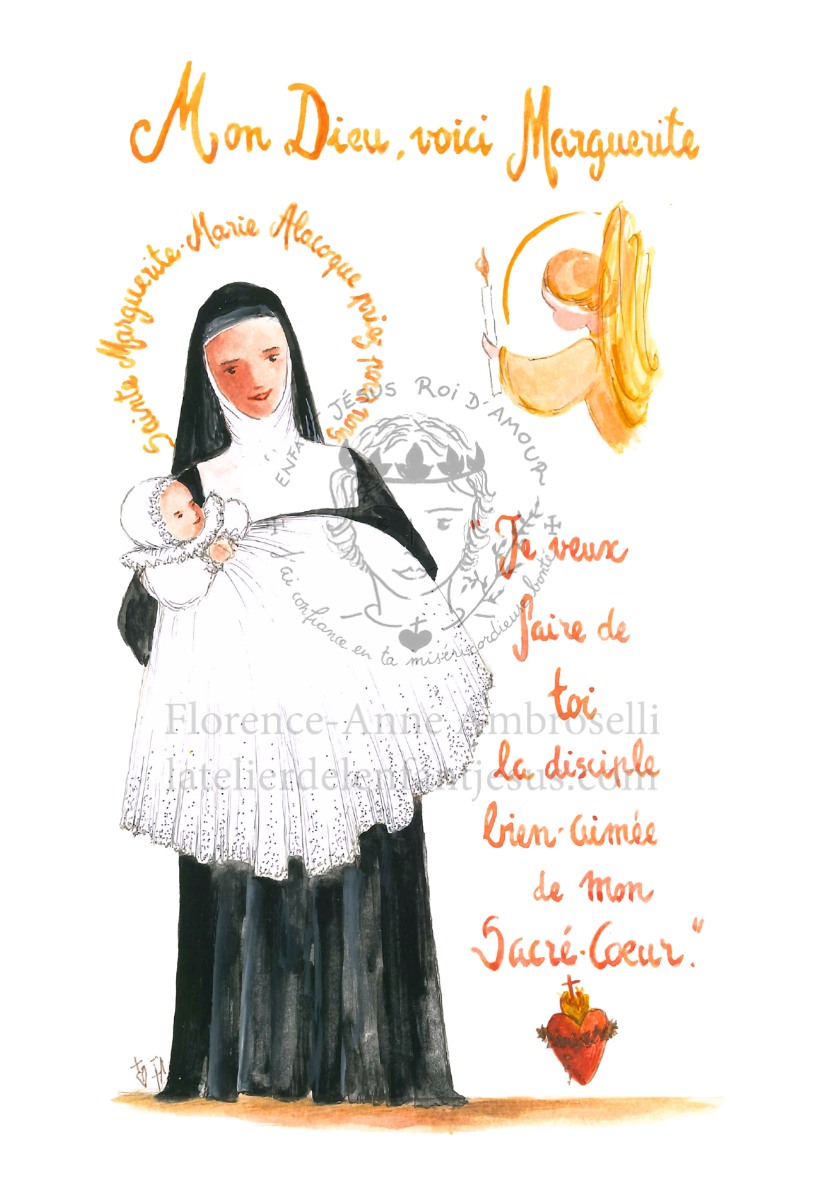 Mon Dieu, voici Marguerite
Sainte Marguerite-Marie Alacoque priez pour nous
ENFANT JÉSUS ROI D'AMOUR
J'ai confiance en ta miséricordieuse bonté
"Je veux
faire de
toi
la disciple
bien-aimée
de mon
Sacré-Coeur."
Florence-Anne Ambroselli
latelierdelenfantjesus.com